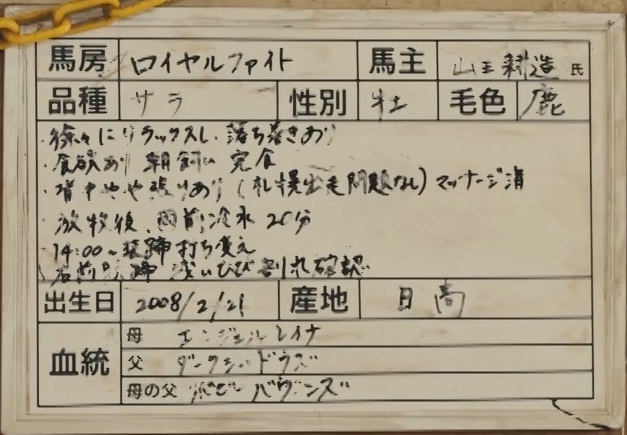 馬房 ロイヤルファイト 馬主 山王耕造 氏
品種 サラ 性別 牡 毛色 鹿
・徐々にリラックスし、落ち着きあり
・食欲あり 朝飼い 完食
・背中やや張りあり(札幌出走問題なし)マッサージ済
・放牧後、両前冷水 20分
・14:00~装蹄打ち変え
右前 蹄 浅いひび割れ確認
出生日 2008/2/21 産地 日高
血統
母 エンジェルレイナ
父 ダークシャドウズ
母の父 バウンズ